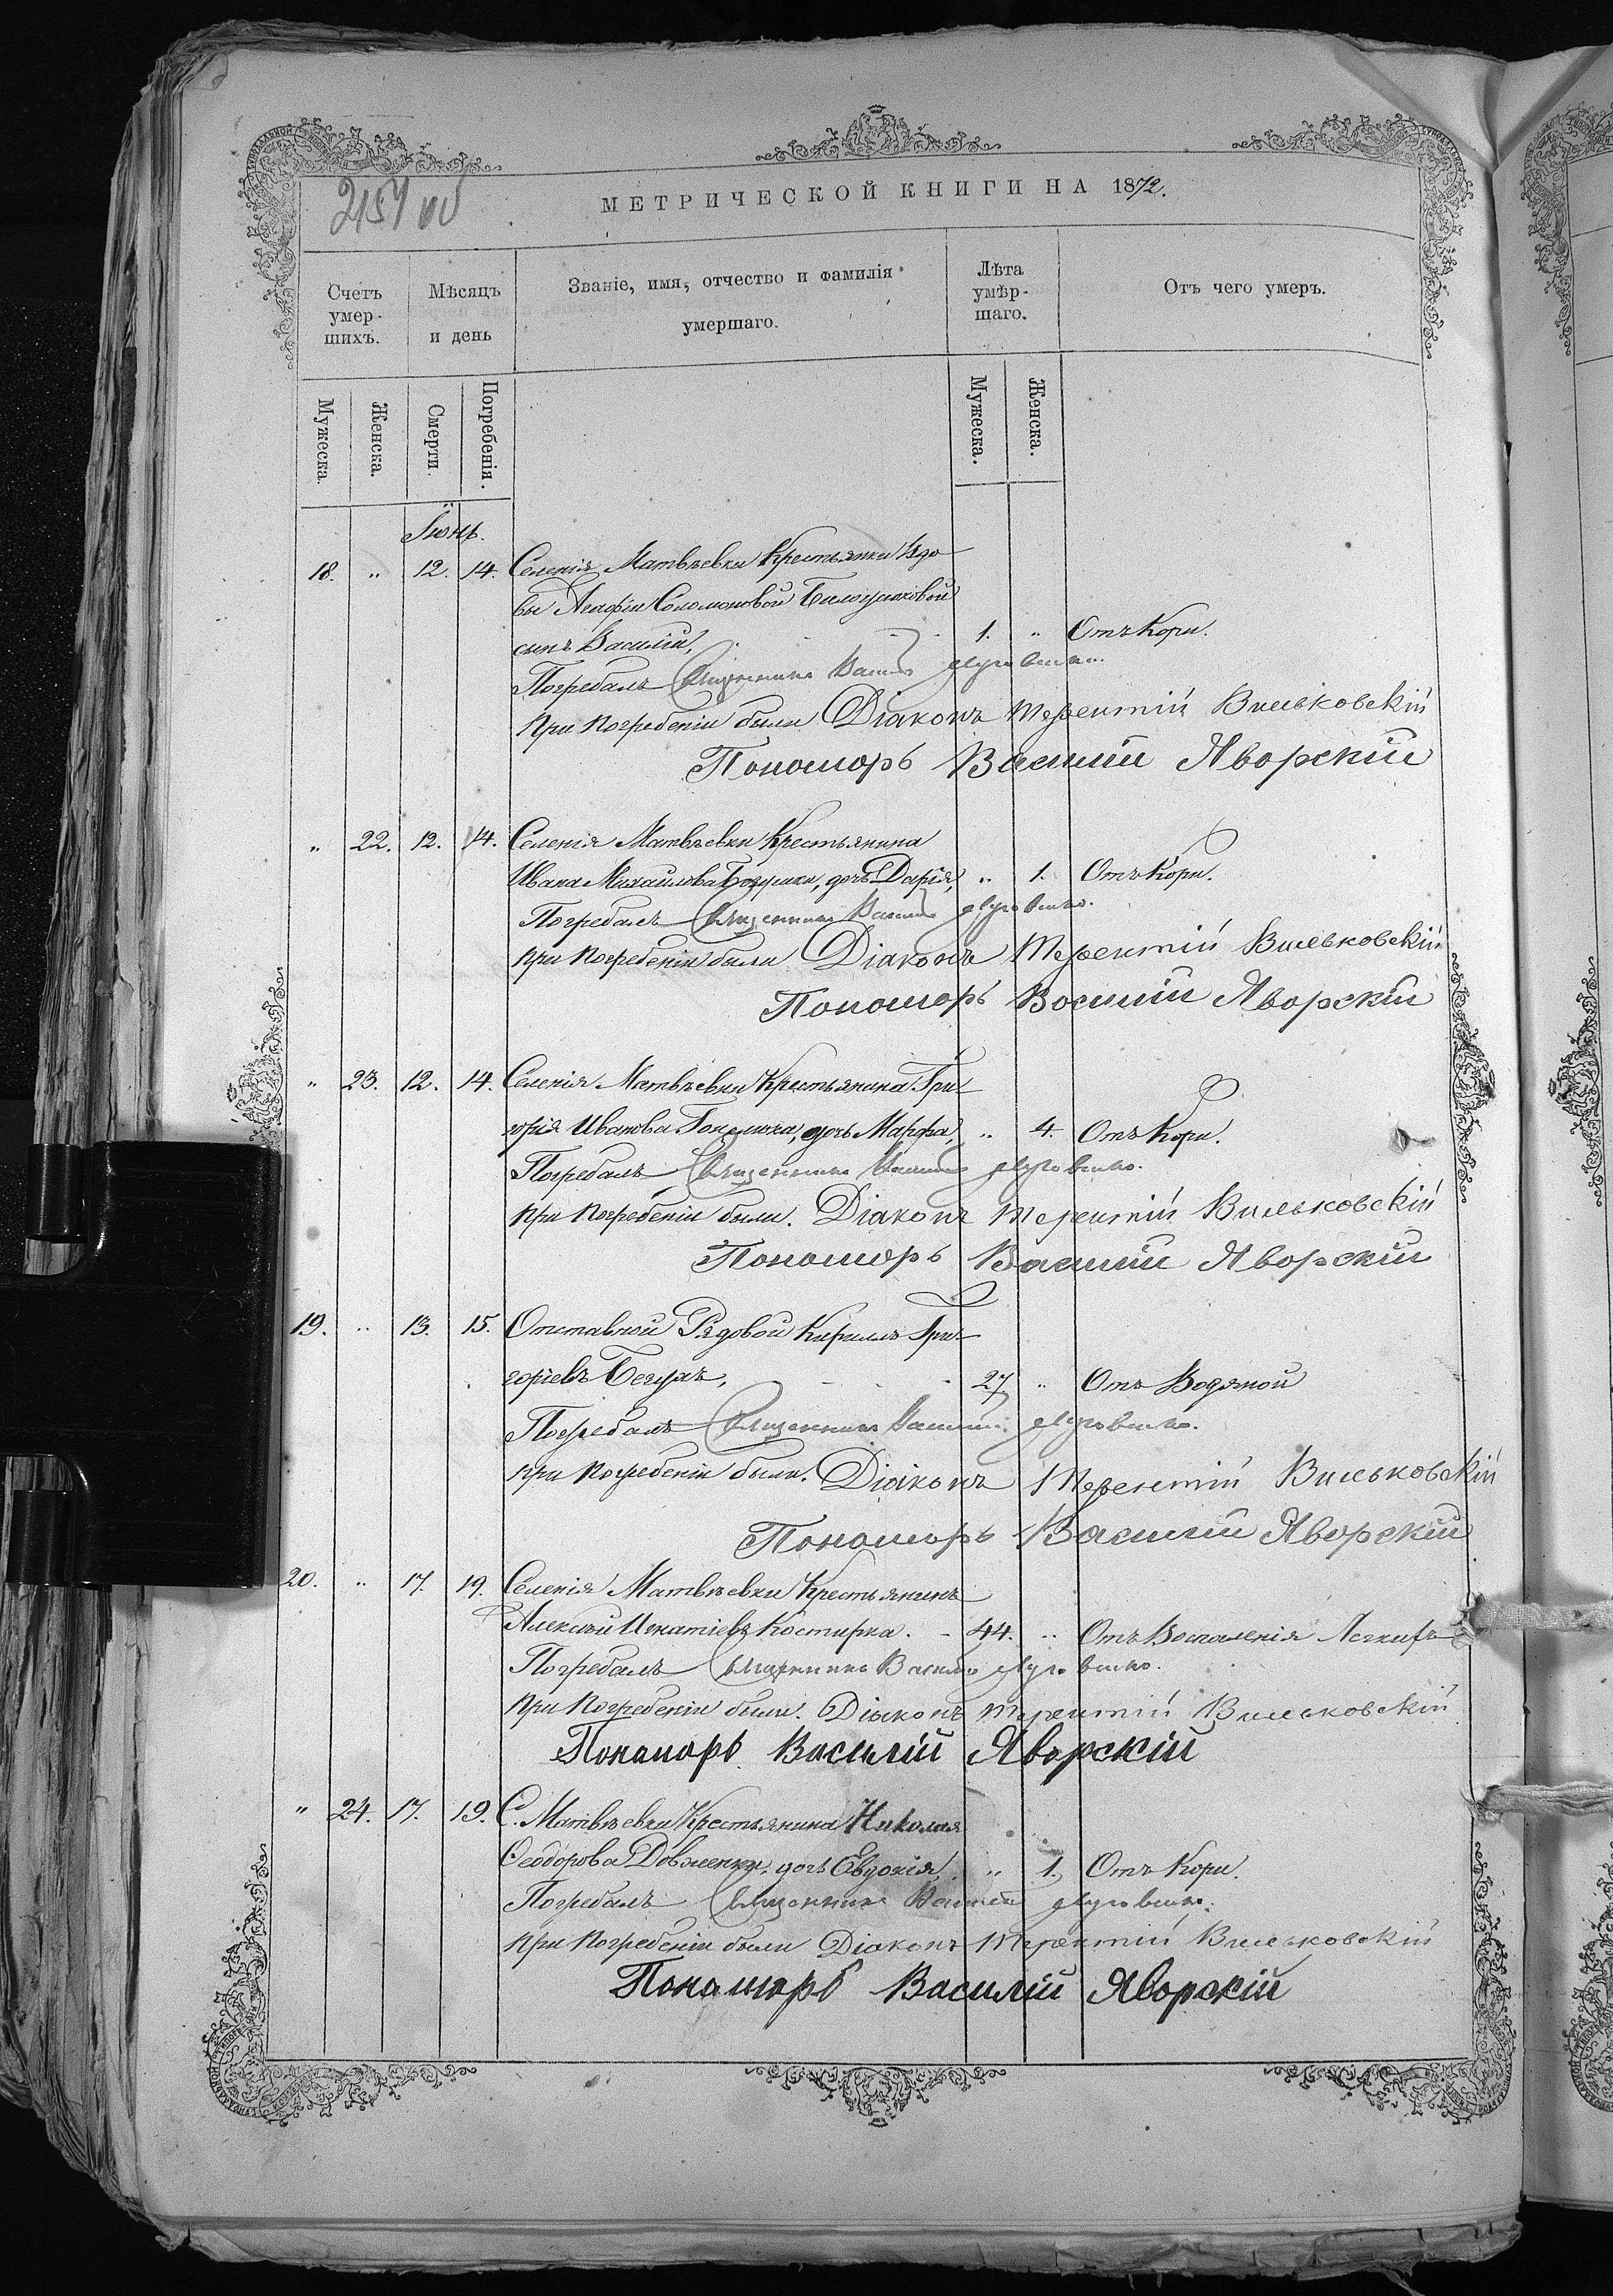 2157 об
МЕТРИЧЕСКОЙ КНИГИ НА 1872.
Счетъ умер-шихъ.
Мѣсяцъ и день
Званіе, имя, отчество и фамилія умершаго.
Лѣта умѣр-шаго.
Отъ чего умеръ.
Мужеска.
Женска.
Смерти.
Погребенія.
Мужеска.
Женска.
Іюнь.
18. " 12. 14. Селенія Матвѣевки Крестьянки Вдо
вы Агафіи Соломоновой
сынъ Василій, 1. " Отъ Кори.
Погребалъ Священникъ Василій
при погребеніи были Діаконъ Терентій Вильковскій
Пономарь Василій Яворскій
" 22. 12. 14. Селенія Матвѣевки Крестьянина
Ивана Михайлова дочь Дарія, " 1. Отъ Кори.
Погребалъ Священникъ Василій
при погребеніи были Діаконъ Терентій Вильковскій
Пономарь Василій Яворскій
" 23. 12. 14. Селенія Матвѣевки Крестьянина Гри
горія Иванова дочь Марфа, " 4. Отъ Кори.
Погребалъ Священникъ Василій
при погребеніи были. Діаконъ Терентій Вильковскій
Пономарь Василій Яворскій
19. " 13. 15. Отставной Рядовой Кирилъ Гри
горіевъ 27. " Отъ Водяной
Погребалъ Священникъ Василій
при погребеніи были. Діаконъ Терентій Вильковскій
Пономарь Василій Яворскій
20. " 17. 19. Селенія Матвѣевки Крестьянинъ
Алексѣй Игнатіевъ Костирка. 44. " Отъ Воспаленія Легкихъ
Погребалъ Священникъ Василій
при погребеніи были. Діаконъ Терентій Вильковскій
Пономарь Василій Яворскій
" 24. 17. 19. С. Матвѣевки Крестьянина Николая
Ѳеодорова Довженки, дочь Евдокія, " 1. Отъ Кори.
Погребалъ Священникъ Василій
при погребеніи были Діаконъ Терентій Вильковскій
Пономарь Василій Яворскій